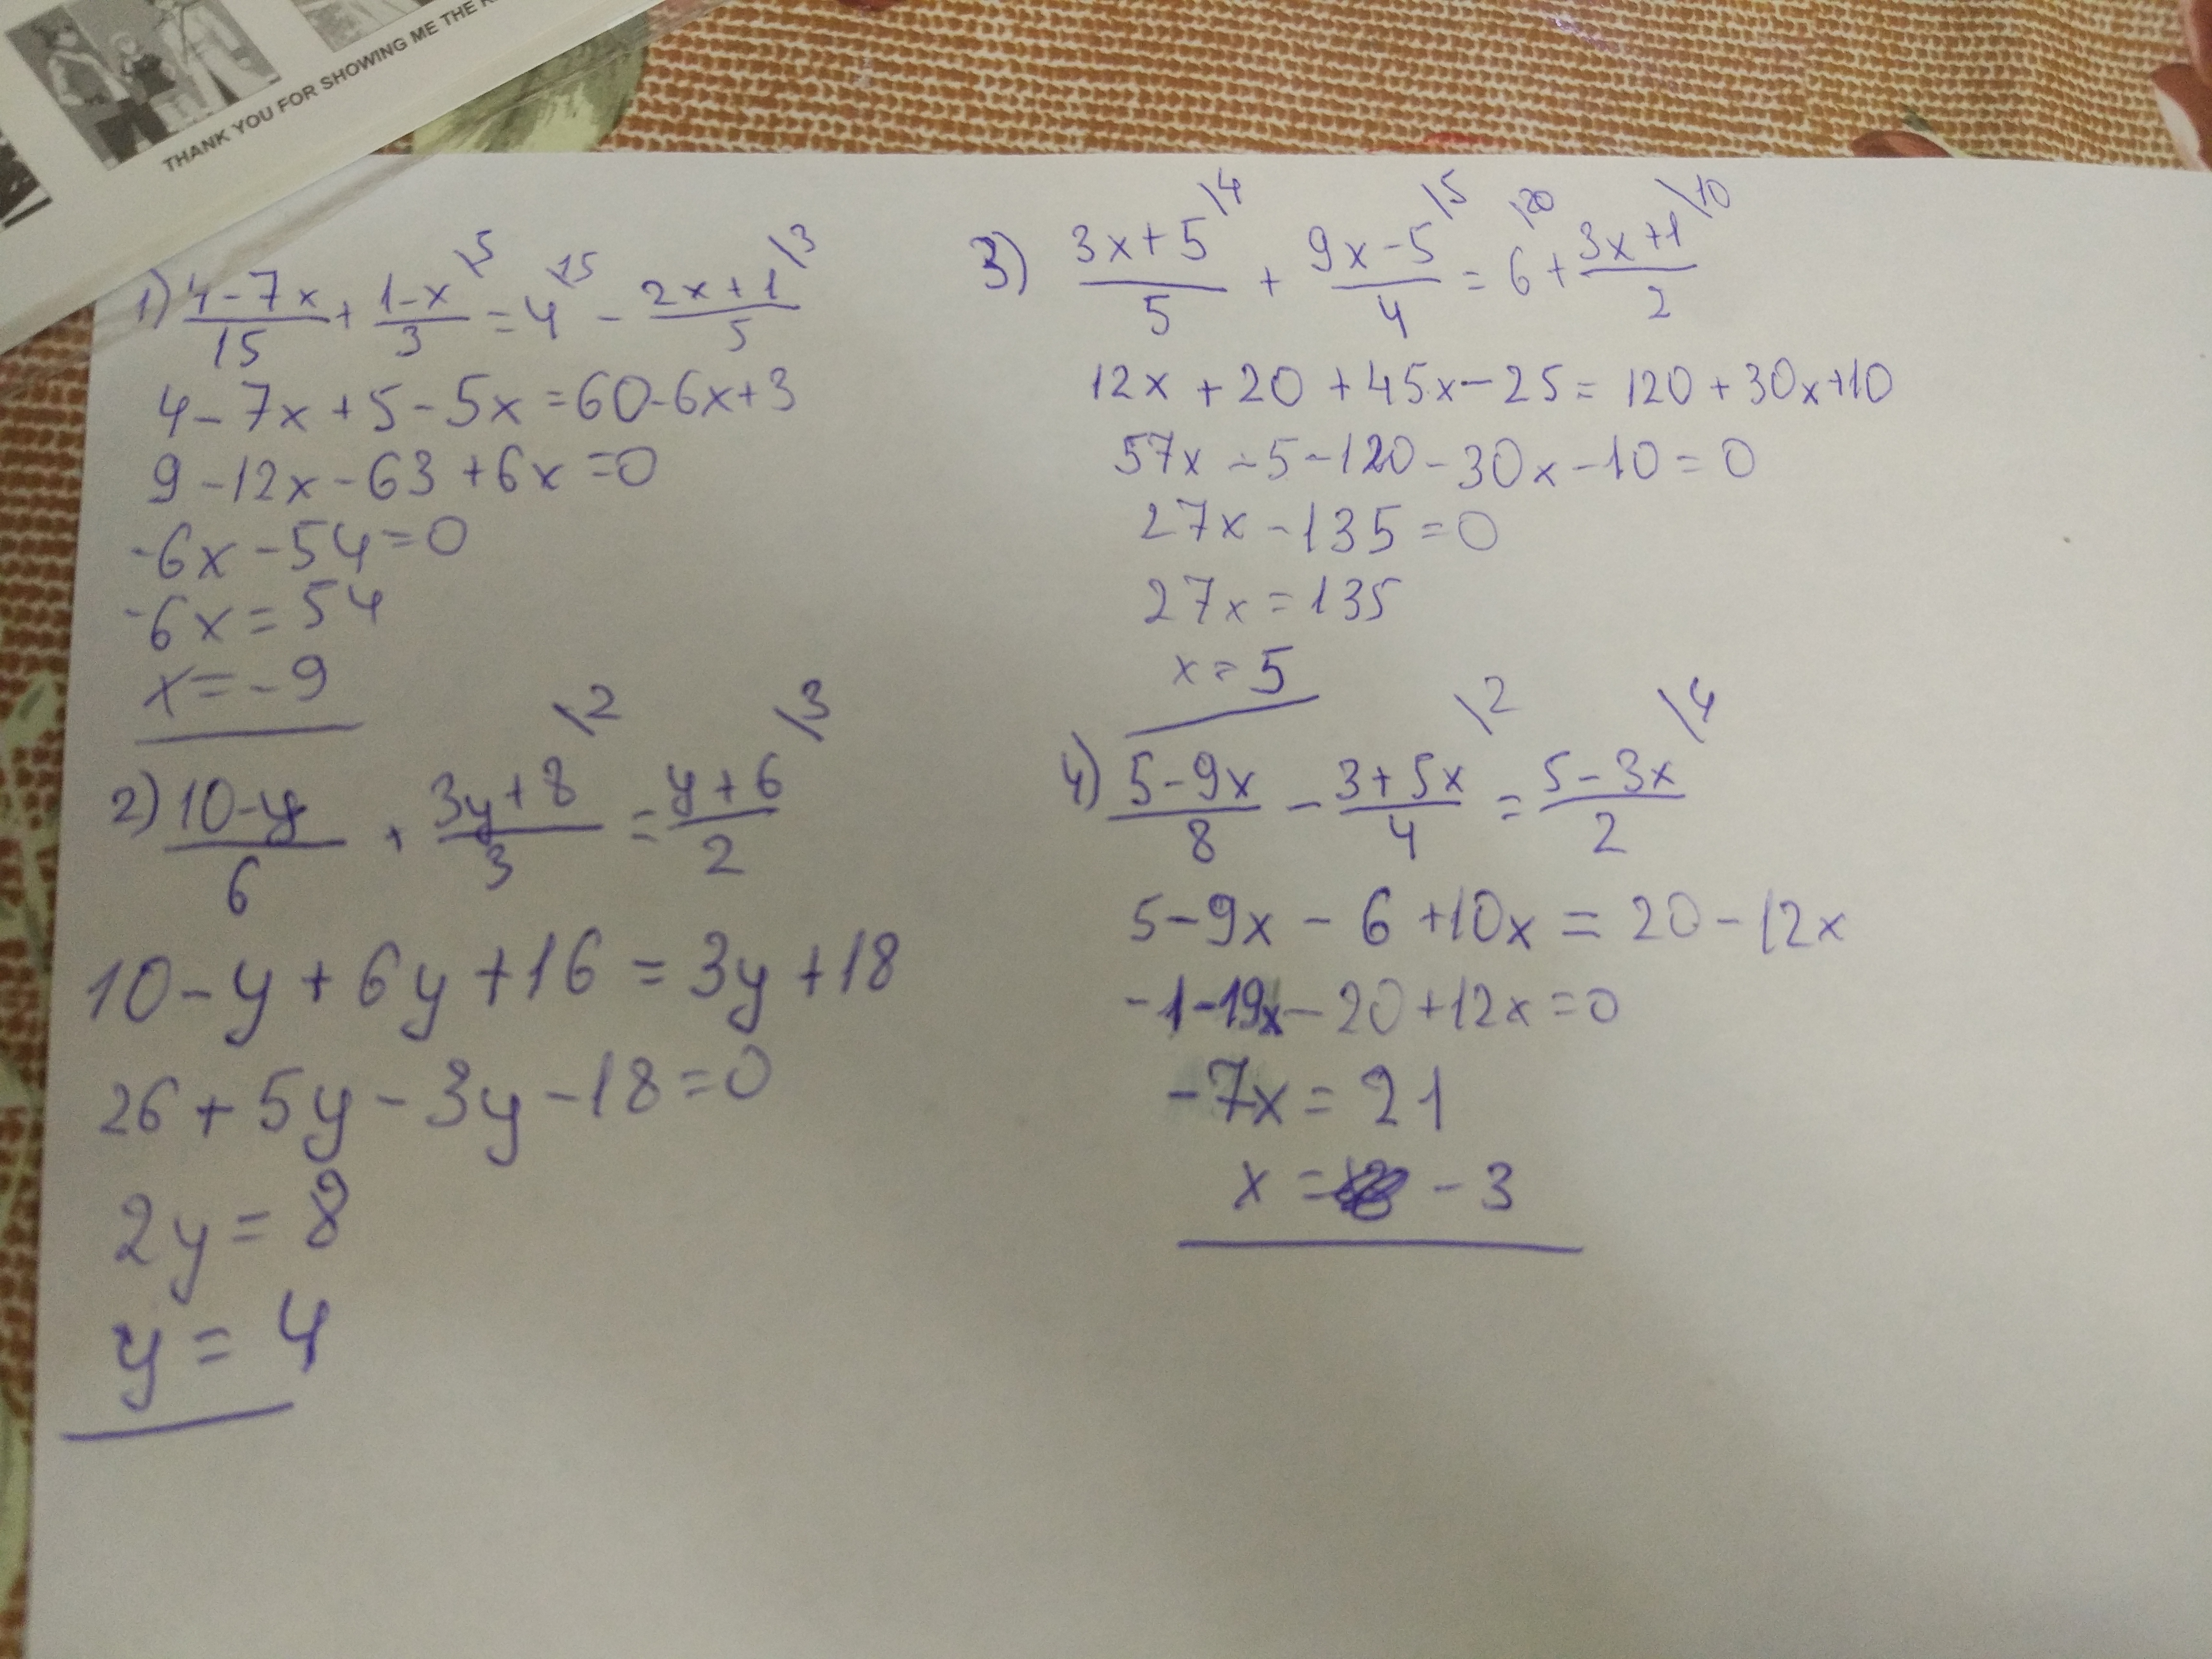 THANK YOU FOR SHOWING ME THE
1) (4-7x)/15 + (1-x)/3 \5 = 4 \15 - (2x+1)/5 \3
4-7x+5-5x=60-6x+3
9-12x-63+6x=0
-6x-54=0
-6x=54
x=-9
2) (10-y)/6 + (3y+8)/3 \2 = (y+6)/2 \3
10-y+6y+16=3y+18
26+5y-3y-18=0
2y=8
y=4
3) (3x+5)/5 \4 + (9x-5)/4 \5 = 6 \20 + (3x+1)/2 \10
12x+20+45x-25=120+30x+10
57x-5-120-30x-10=0
27x-135=0
27x=135
x=5
4) (5-9x)/8 - (3+5x)/4 \2 = (5-3x)/2 \4
5-9x-6+10x=20-12x
-1-19x-20+12x=0
-7x=21
x= -3